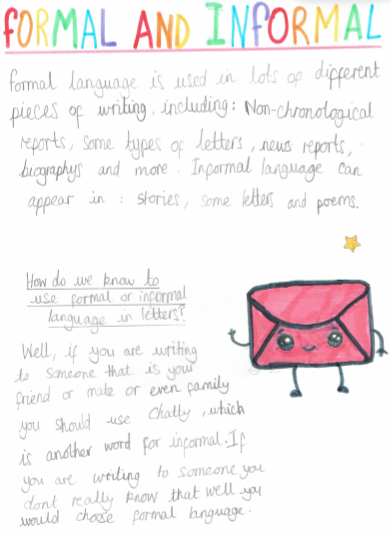 FORMAL AND INFORMAL
formal language is used in lots of different
pieces of writing, including: Non-chronological
reports, some types of letters, news reports,
biographys and more. Informal language can
appear in : stories, some letters and poems.
How do we know to
use formal or informal
language in letters?
Well, if you are writing
to someone that is your
friend or mate or even family
you should use Chatty, which
is another word for informal. If
you are writing to someone you
dont really know that well you
would choose formal language.